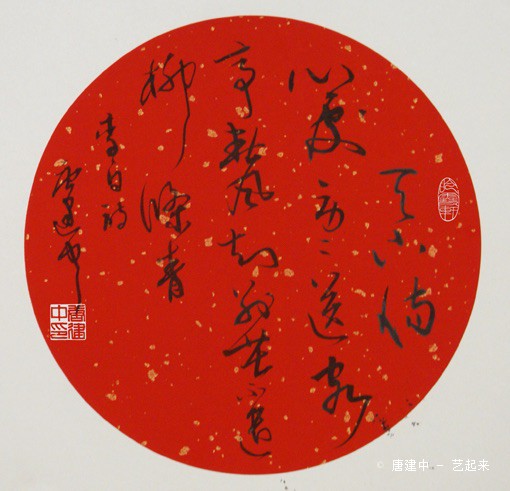 天下傷
心處勞〻送客
亭春風知別苦不遣
柳條青
李白詩
唐建中
唐建中印
© 唐建中 - 艺起来